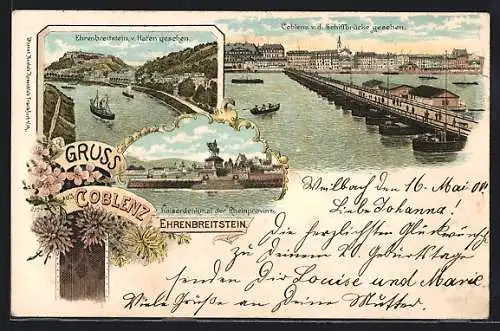 Ehrenbreitstein, v. Hafen gesehen.
Coblenz v. d. Schiffbrücke gesehen.
GRUSS
aus COBLENZ
Kaiserdenkmal der Rheinprovinz.
EHRENBREITSTEIN.
Weilbach den 16. Mai 00.
Liebe Johanna!
Die herzlichsten Glückwünsche
zu Deinem Geburtstage
senden Dir Louise und Marie
Viele Grüße an Deine Mutter.